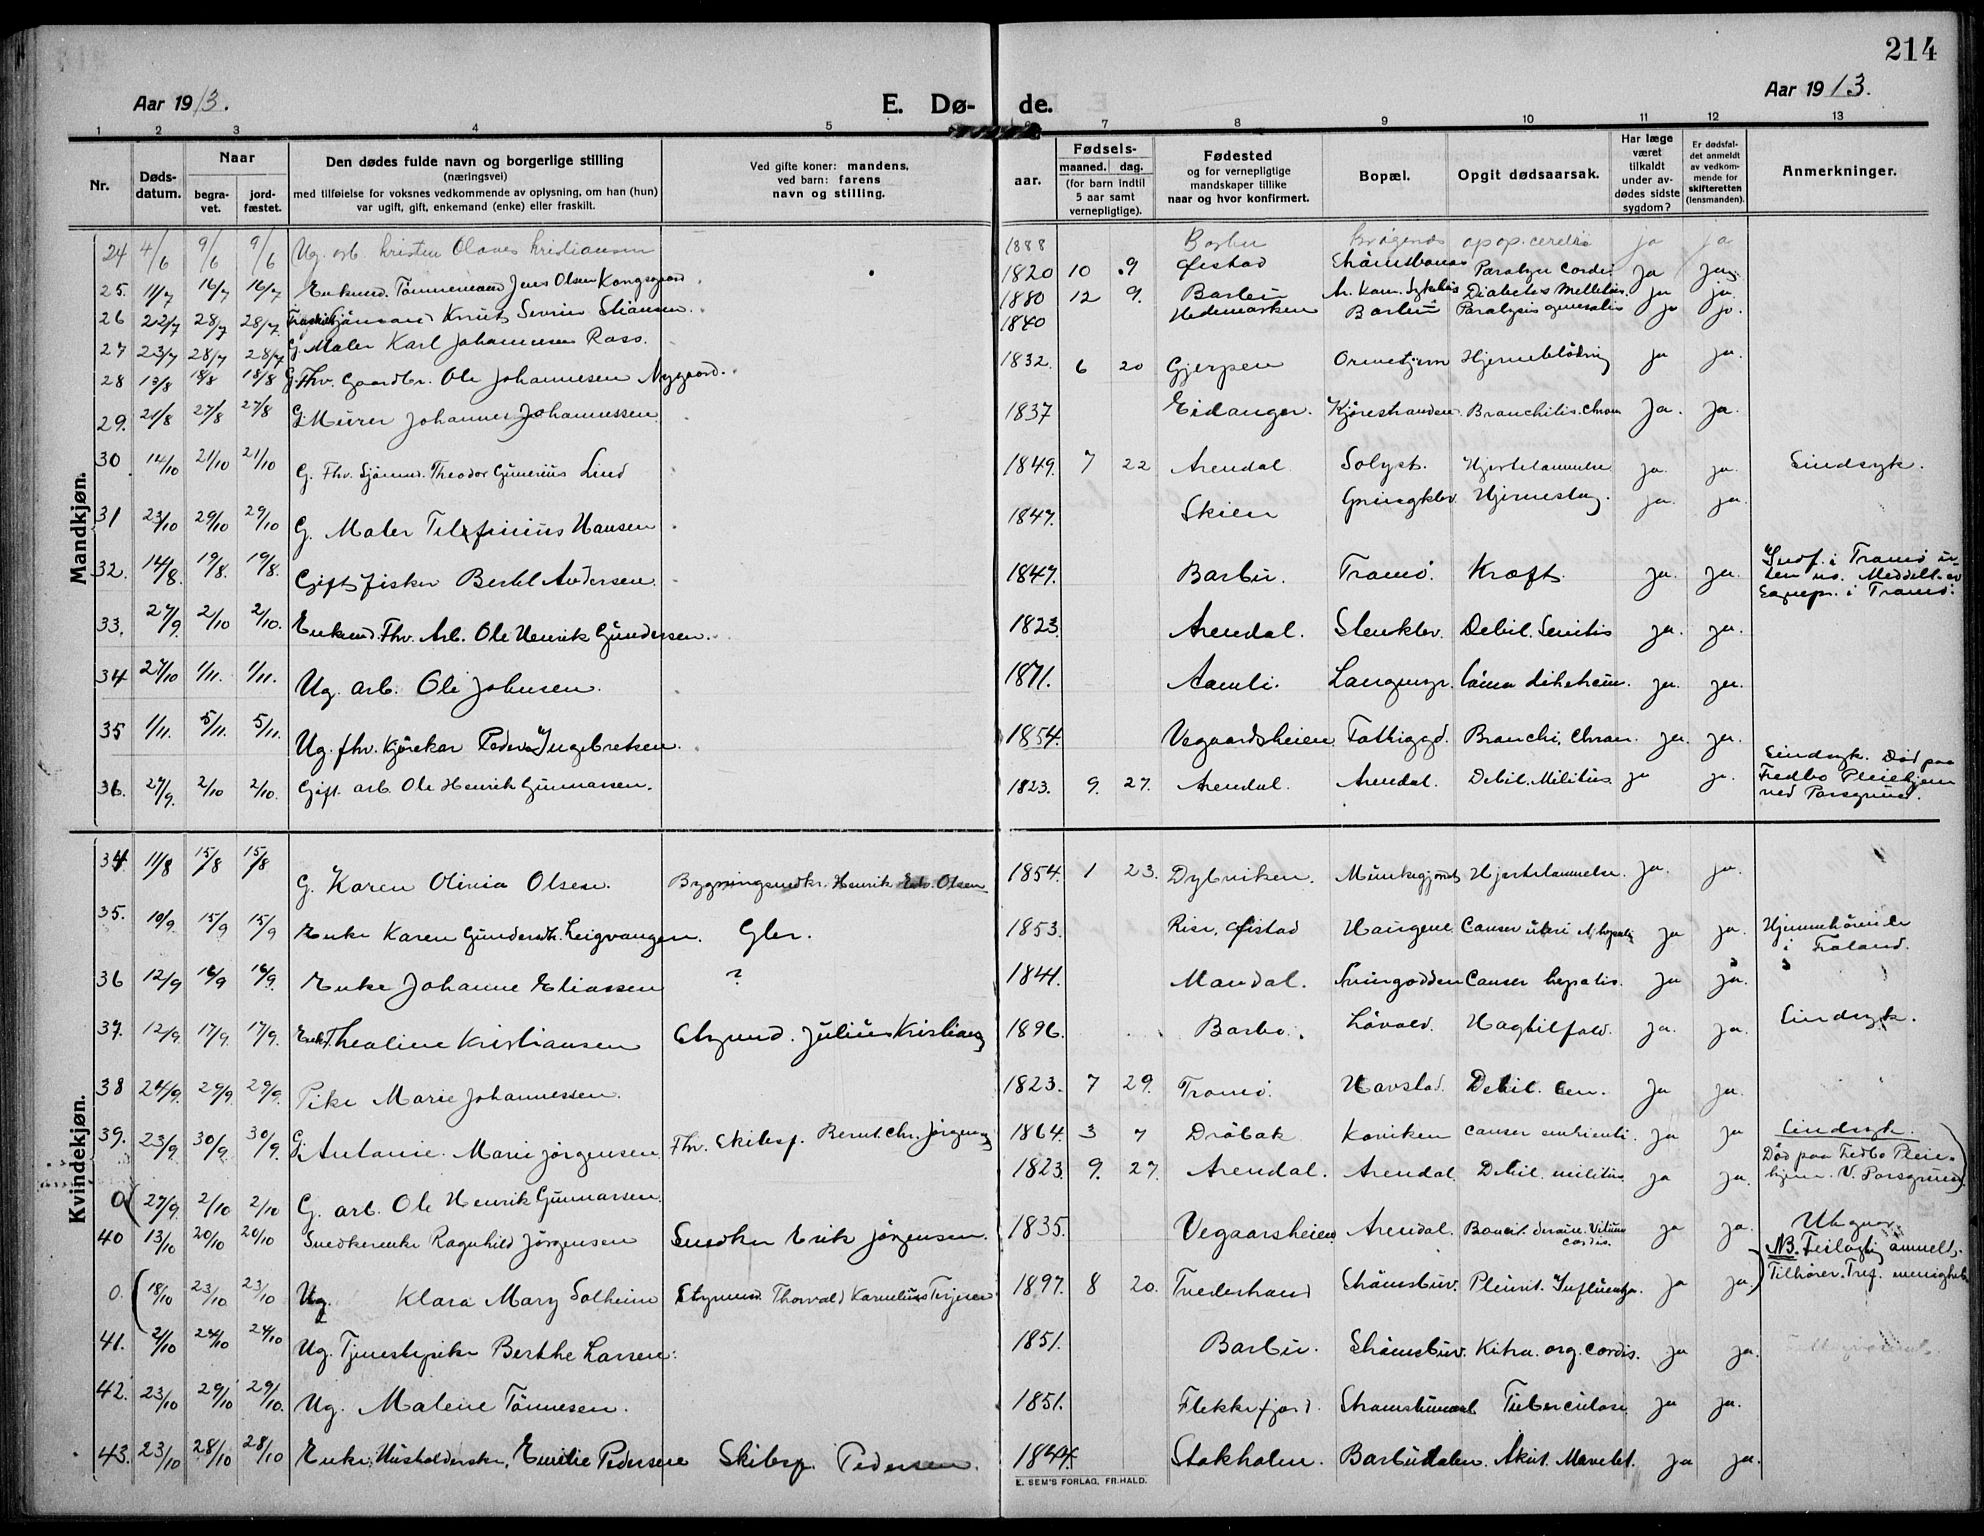 214
Aar 1913.
E. Dø- de.
Aar 1913.
1 2 3 4 5 6 7 8 9 10 11 12 13
Nr.
Døds-
datum.
Naar
begra-
vet.
jord-
fæstet.
Den dødes fulde navn og borgerlige stilling
(næringsvei)
med tilføielse for voksnes vedkommende av oplysning, om han (hun)
var ugift, gift, enkemand (enke) eller fraskilt.
Ved gifte koner: mandens,
ved barn: farens
navn og stilling.
aar.
Fødsels-
maaned. dag.
(for barn indtil
5 aar samt
vernepligtige).
Fødested
og for vernepligtige
mandskaper tillike
naar og hvor konfirmert.
Bopæl.
Opgit dødsaarsak.
Har læge
været
tilkaldt
under av-
dødes sidste
sygdom?
Er dødsfal-
det anmeldt
av vedkom-
mende for
skifteretten
(lensmanden).
Anmerkninger.
Mandkjøn.
24 4/6 9/6 9/6 Ug. arb. Kristen Olaves Kristiansen 1888 Barbu apop. cerebri ja ja
25. 11/7 16/7 16/7 Enkemd. Tømmermand Jens Olsen Kongsgaard 1820 10 9 Øistad Paralyse Cordis ja ja
26 22/7 28/7 28/7 Sjømand Knut Sevrin Stiansen 1880 12 9. Barbu Diabetes Mellitus. ja ja
27 23/7 28/7 28/7 G. Maler Karl Johannesen Ross. 1840 Hedemarken Barbu Paralysis generalis ja ja.
28 13/8 18/8 18/8 G. Fhv. Gaardbr. Ole Johannesen Nygaard. 1832. 6 20 Gjerpen Ormetjern Hjerneblødning ja ja.
29. 21/8 27/8 27/8 G. Murer Johannes Johannessen 1837 Eidanger. Kjørestranden. Branchitis. chron ja. ja.
30 14/10 21/10 21/10 G. Fhv. Sjømnd. Theodor Gunerius Lind 1849. 7 22 Arendal Solyst. Hjertelammelse ja. ja. Sindsyk.
31 23/10 29/10 29/10 G. Maler Hansen 1847. Skien Hjerneslag. ja. ja.
32. 14/8. 19/8. 19/8. Gift fisker Bertel Andersen. 1847. Barbu. Tromø. Kræft. ja. ja. Indf. i Tromø u-
ten no. Meddelt av
Sognepr. i Tromø.
33. 27/9 2/10 2/10. Enkemd. Fhv. Arb. Ole Henrik Gundersen. 1823. Arendal. Stenklev. Debil. Senilis ja. ja.
34 27/10 1/11. 1/11. Ug. arb. Ole Johnsen. 1871. Aamli. ja. ja.
35 1/11. 5/11. 5/11. Ug. fhv. Kjørekar Peder Ingebretsen. 1854. Vegaardsheien Fattiggd. Branchi. Chron. ja. ja.
36. 27/9. 2/10 2/10. Gift. arb. Ole Henrik Gunnarsen. 1823. 9. 27. Arendal. Arendal. Debil. Militus ja ja. Sindsyk. Død paa
Fredbo Pleiehjem
ved Porsgrund.
Kvindekjøn.
34 11/8 15/8 15/8 G. Karen Olivia Olsen. Bygningssnedkr. Henrik Edv. Olsen 1854. 1 23. Dybviken. Hjertelammelse. ja. ja.
35. 10/9. 15/9 15/9 Enke Karen Gundersdtr. Leigvangen. Gbr. 1853. Risr, Øistad Haugene Canser uteri ja ja. Hjemmehørende
i Froland.
36 12/9 16/9 16/9. Enke Johanne Eliassen ? 1841. Mandal. Canser hepatis. ja ja.
37. 12/9. 17/9. 17/9. Enke Thealine Kristiansen Styrmd. Julius Kristians 1896. Barbo. Løvold. ja. ja. Sindsyk.
38 24/9. 29/9. 29/9. Pike Marie Johannessen. 1823. 7 29. Tromø. Havstad. Debil. sen. ja ja.
39. 23/9. 30/9 30/9. G. Antonie Marie Jørgensen. Fhv. Skibsf. Bernt. Chr. Jørgens 1864. 3 7 Drøbak Kaviken Canser ja ja Sindsyk.
0 27/9. 2/10 2/10 G. arb. Ole Henrik Gunnarsen. 1823. 9. 27. Arendal. Arendal. Debil. militus ja ja. Død paa Fredbo Pleie-
hjem. V. Porsgrund.
40 13/10 20/10 20/10 Snedkerenke Ragnhild Jørgensen Snedker Erik Jørgensen. 1835. Vegaarsheien Arendal. Vitium
cordis. ja ja.
0. 18/10 23/10 23/10 Ug. Klara Mary Solheim Styrmnd. Thorvald Kornelius Terjesen 1897. 8 20. Tvedestrand Pleurit. Influensa. ja ja. NB. Feilagtig anmeldt.
Tilhører Tref. menighet
41. 2/10 24/10 24/10 Ug. Tjenestepike Berthe Larsen. 1851. Barbu. Strømsbuv. org. cordis. ja ja.
42. 23/10 29/10 29/10. Ug. Malene Tønnesen. 1851. Flekkefjord. Tuberculose ja ja.
43. 23/10 28/10 28/10 Enke, Husholderske, Emilie Pedersen Skibsf. Pedersen. 1844. Stokholm. Barbudalen. Akut. ja ja.
E. SEM'S FORLAG, FR.HALD.